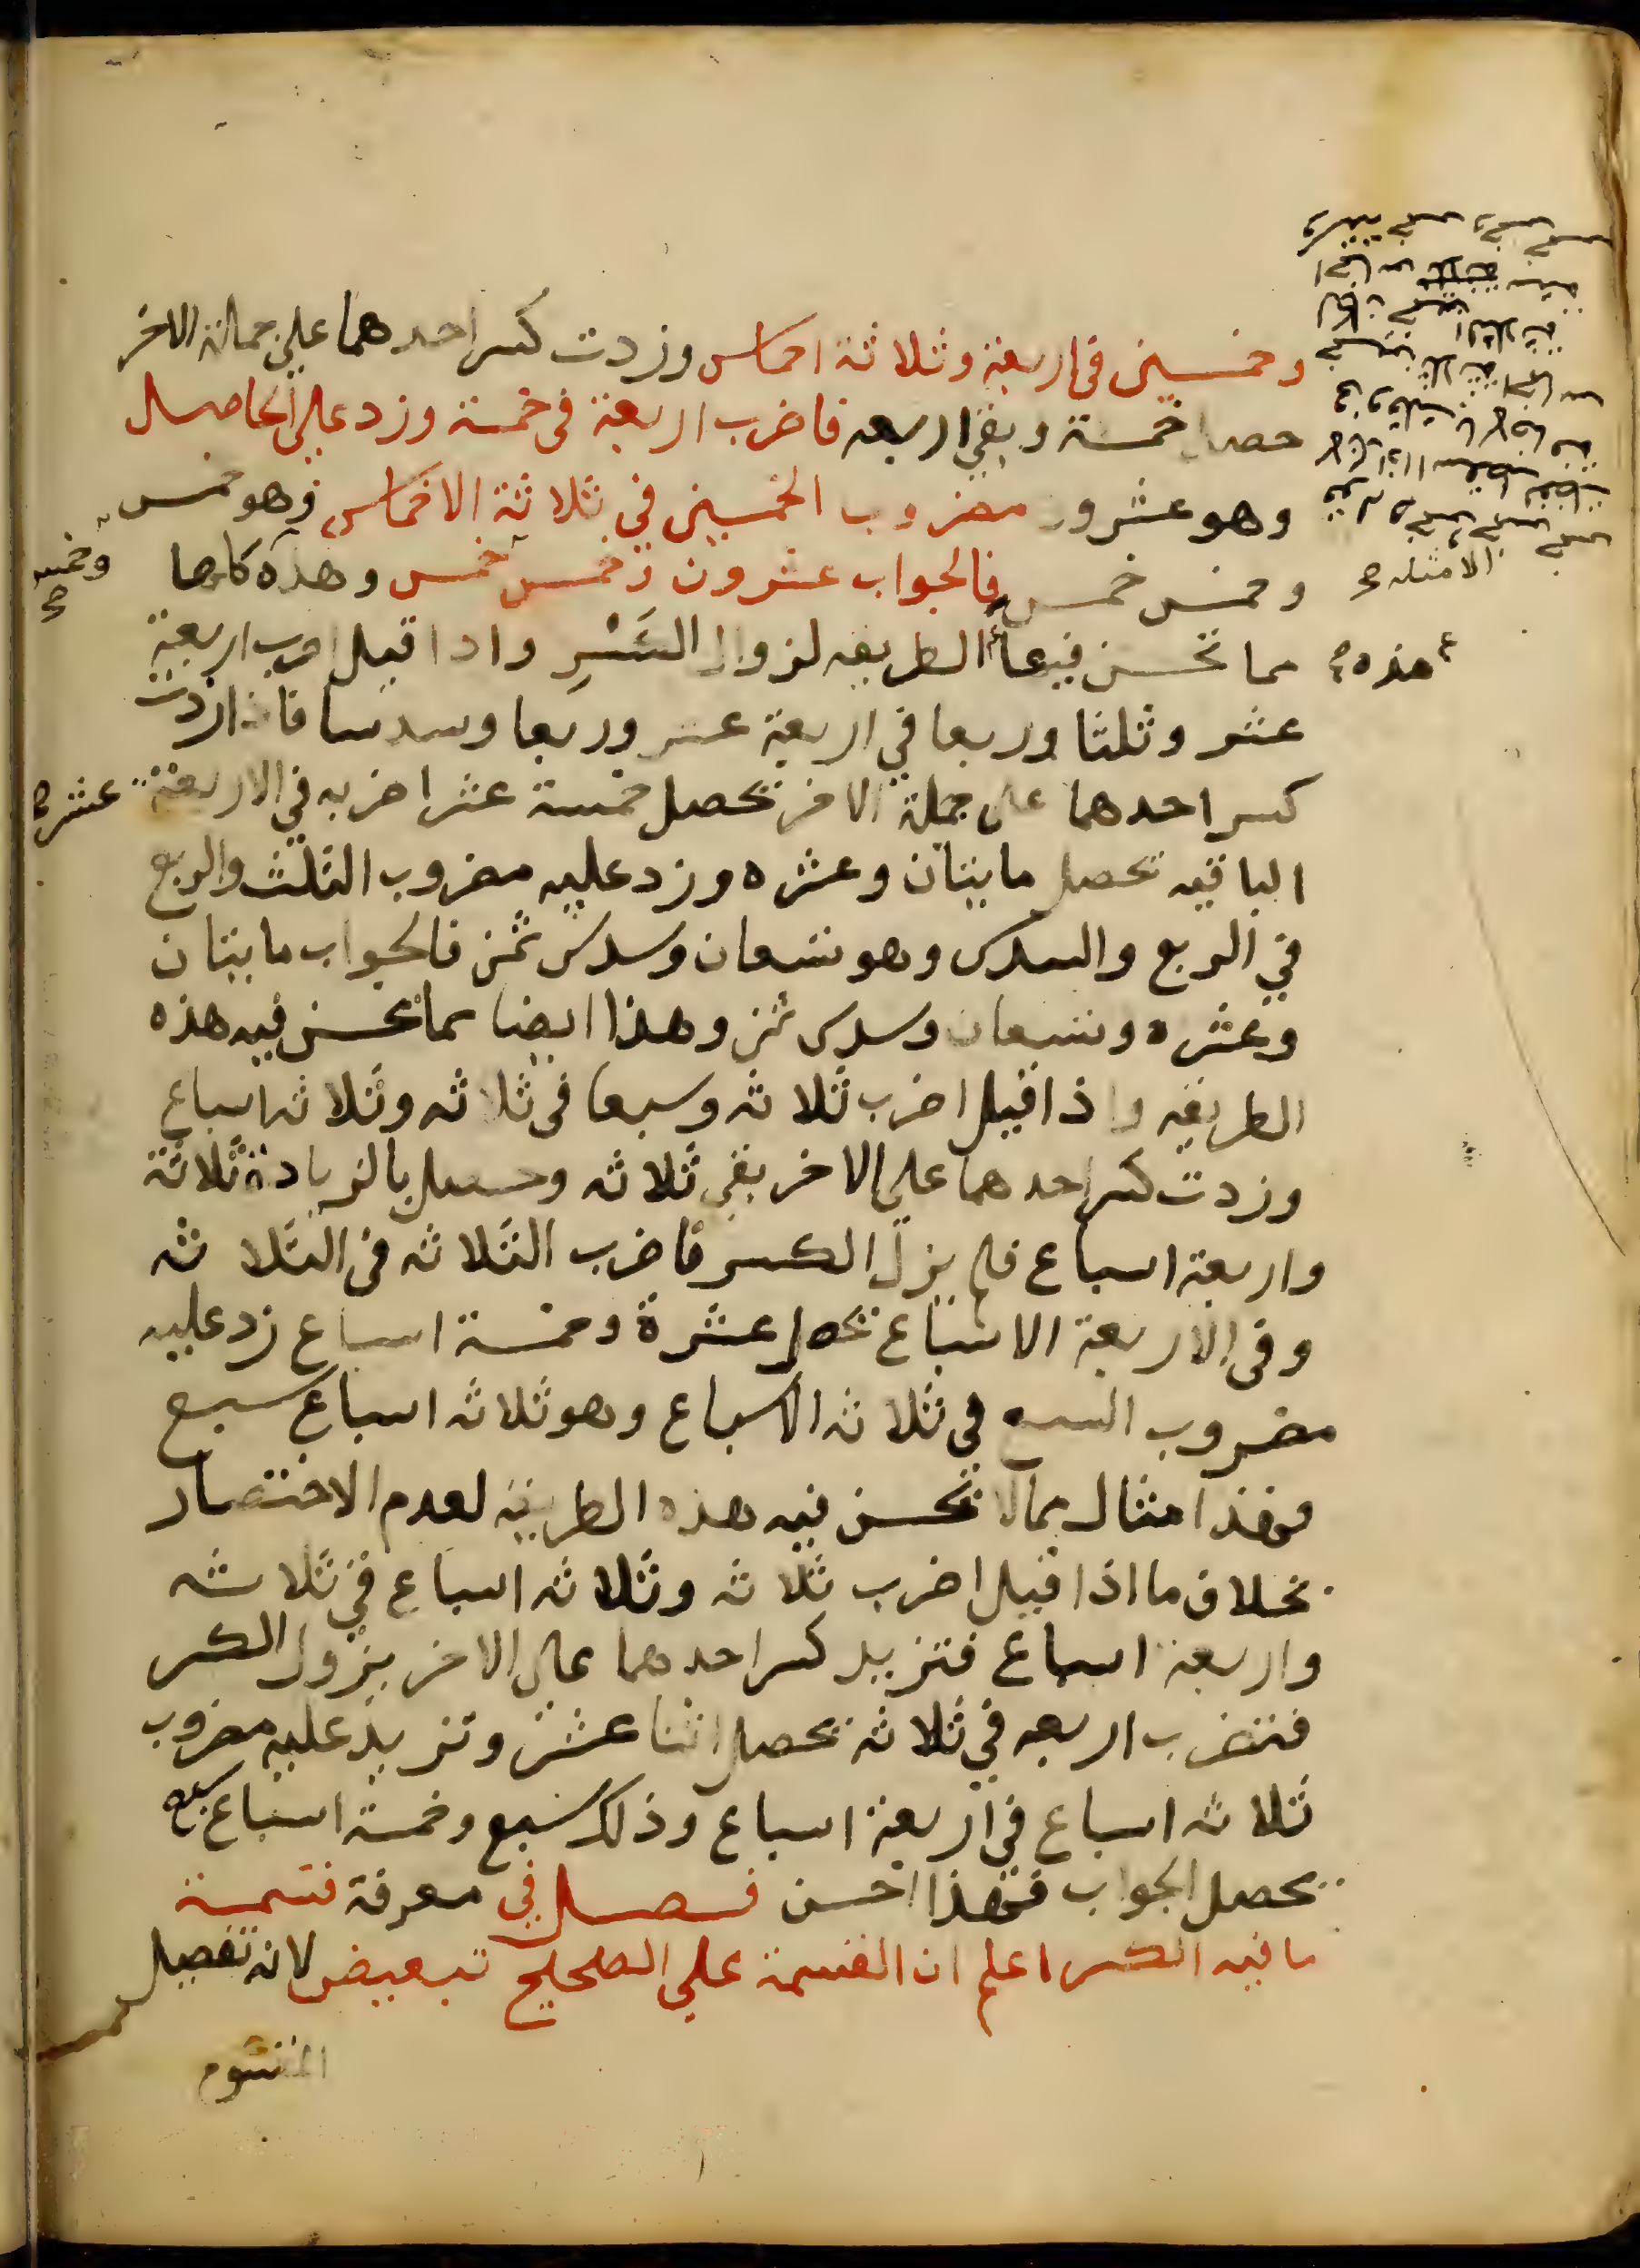 وخمسين في اربعة وثلاثة اخماس وزدت كسر احدهما على جملة الاخر
حصل خمسة وبقي اربعه فاضرب اربعة في خمسة وزد على الحاصل
وهو عشرون مضروب الخمسين في ثلاثة الاخماس وهو خمس
وخمس خمس فالجواب عشرون وخمس خمس وهذه كلها
وخمس صح
مما تحسن فيها الطريقه لزوال الكسر واذا قيل اضرب اربعة
هذه صح
عشر وثلثا وربعا في اربعة عشر وربعا وسدسا فاذا زدت
كسر احدهما على جملة الاخر تحصل خمسة عشر اضربه في الاربعة
عشر صح
الباقيه تحصل مايتان وعشره وزد عليه مضروب الثلث والربع
في الربع والسدس وهو تسعان وسدس ثمن فالجواب مايتان
وعشره وتسعان وسدس ثمن وهذا ايضا مما تحسن فيه هذه
الطريقه واذا قيل اضرب ثلاثه وسبعا في ثلاثه وثلاثه اسباع
وزدت كسر احدهما على الاخر بقي ثلاثه وحصل بالزيادة ثلاثة
واربعة اسباع فلم يزل الكسر فاضرب الثلاثه في الثلاثه
وفي الاربعة الاسباع تحصل عشرة وخمسة اسباع زد عليه
مضروب السبع في ثلاثه الاسباع وهو ثلاثه اسباع سبع
فهذا مثال مما لا تحسن فيه هذه الطريقه لعدم الاختصار
بخلاف ما اذا قيل اضرب ثلاثه وثلاثه اسباع في ثلاثه
واربعة اسباع فتزيد كسر احدهما على الاخر يزول الكسر
فتضرب اربعه في ثلاثه تحصل اثنا عشر وتزيد عليه مضروب
ثلاثه اسباع في اربعة اسباع وذلك سبع وخمسة اسباع سبع
يحصل الجواب فهذا احسن فصل في معرفة قسمة
ما فيه الكسر اعلم ان القسمة على الصحيح تبعيض لانه تفصيل
المقسوم
الامثله صح